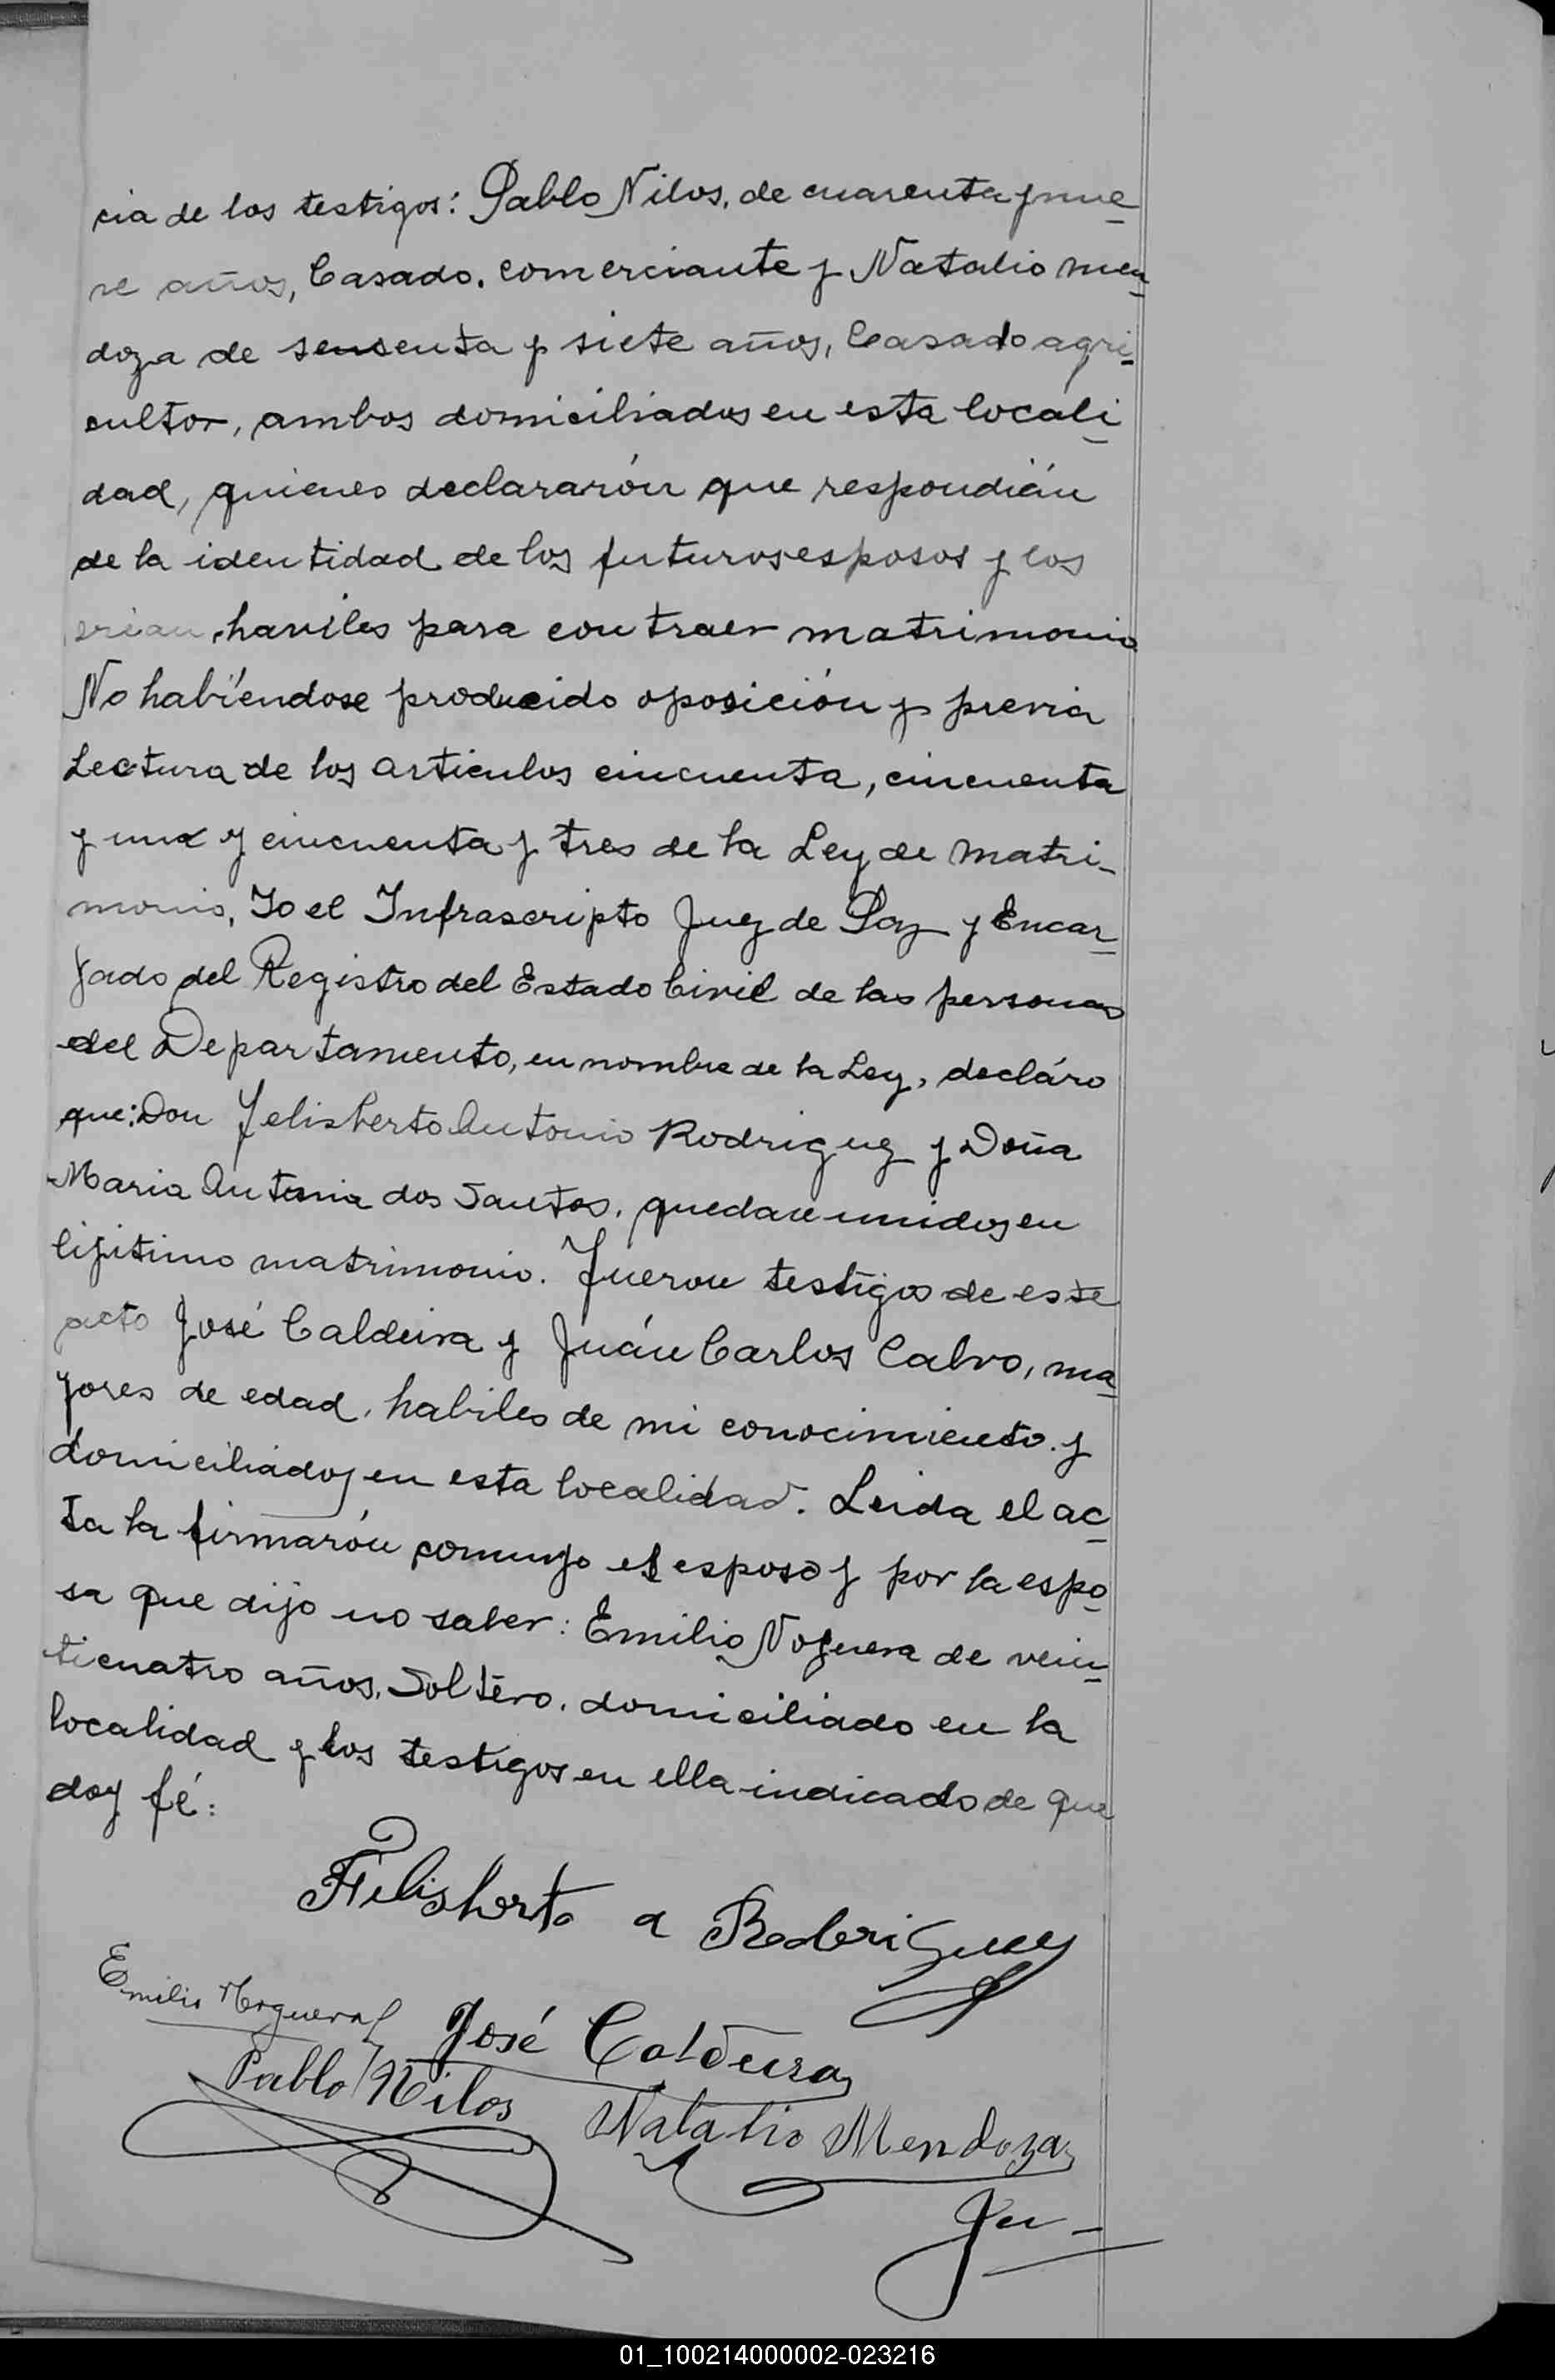 cia de los testigos: Pablo Nilos, de cuarenta y nue
ve años, Casado. comerciante y Natalio men
doza de sensenta y siete años, Casado agri
cultor, ambos domiciliados en esta locali
dad, quienes declararón que respondián
de la identidad de los futuros esposos y los
haviles para contraer matrimonio
No habiéndose producido oposición y previa
Lectura de los articulos cincuenta, cincuenta
y uno y cincuenta y tres de la Ley de matri-
monio, Yo el Infrascripto Juez de Paz y Encar
gado del Registro del Estado Civil de las personas
del Departamento, en nombre de la Ley, decláro
que: Don Felisberto Antonio Rodriguez y Doña
Maria Antonia dos Santos, quedan unidos en
lijitimo matrimonio. Fuerón testigos de este
acto José Caldeira y Juán Carlos Calvo, ma
yores de edad, habiles de mi conocimiento y
domiciliados en esta localidad. Leida el ac
ta la firmarón conmigo el esposo y por la espo
sa que dijo no saber: Emilio Noguera de vein
ticuatro años, Soltero, domiciliado en la
localidad y los testigos en ella indicado de que
doy fé:
Felisberto a Roderiguez
Emilio Noguera
José Caldeira
Pablo Nilos
Natalio Mendoza
01_100214000002-023216